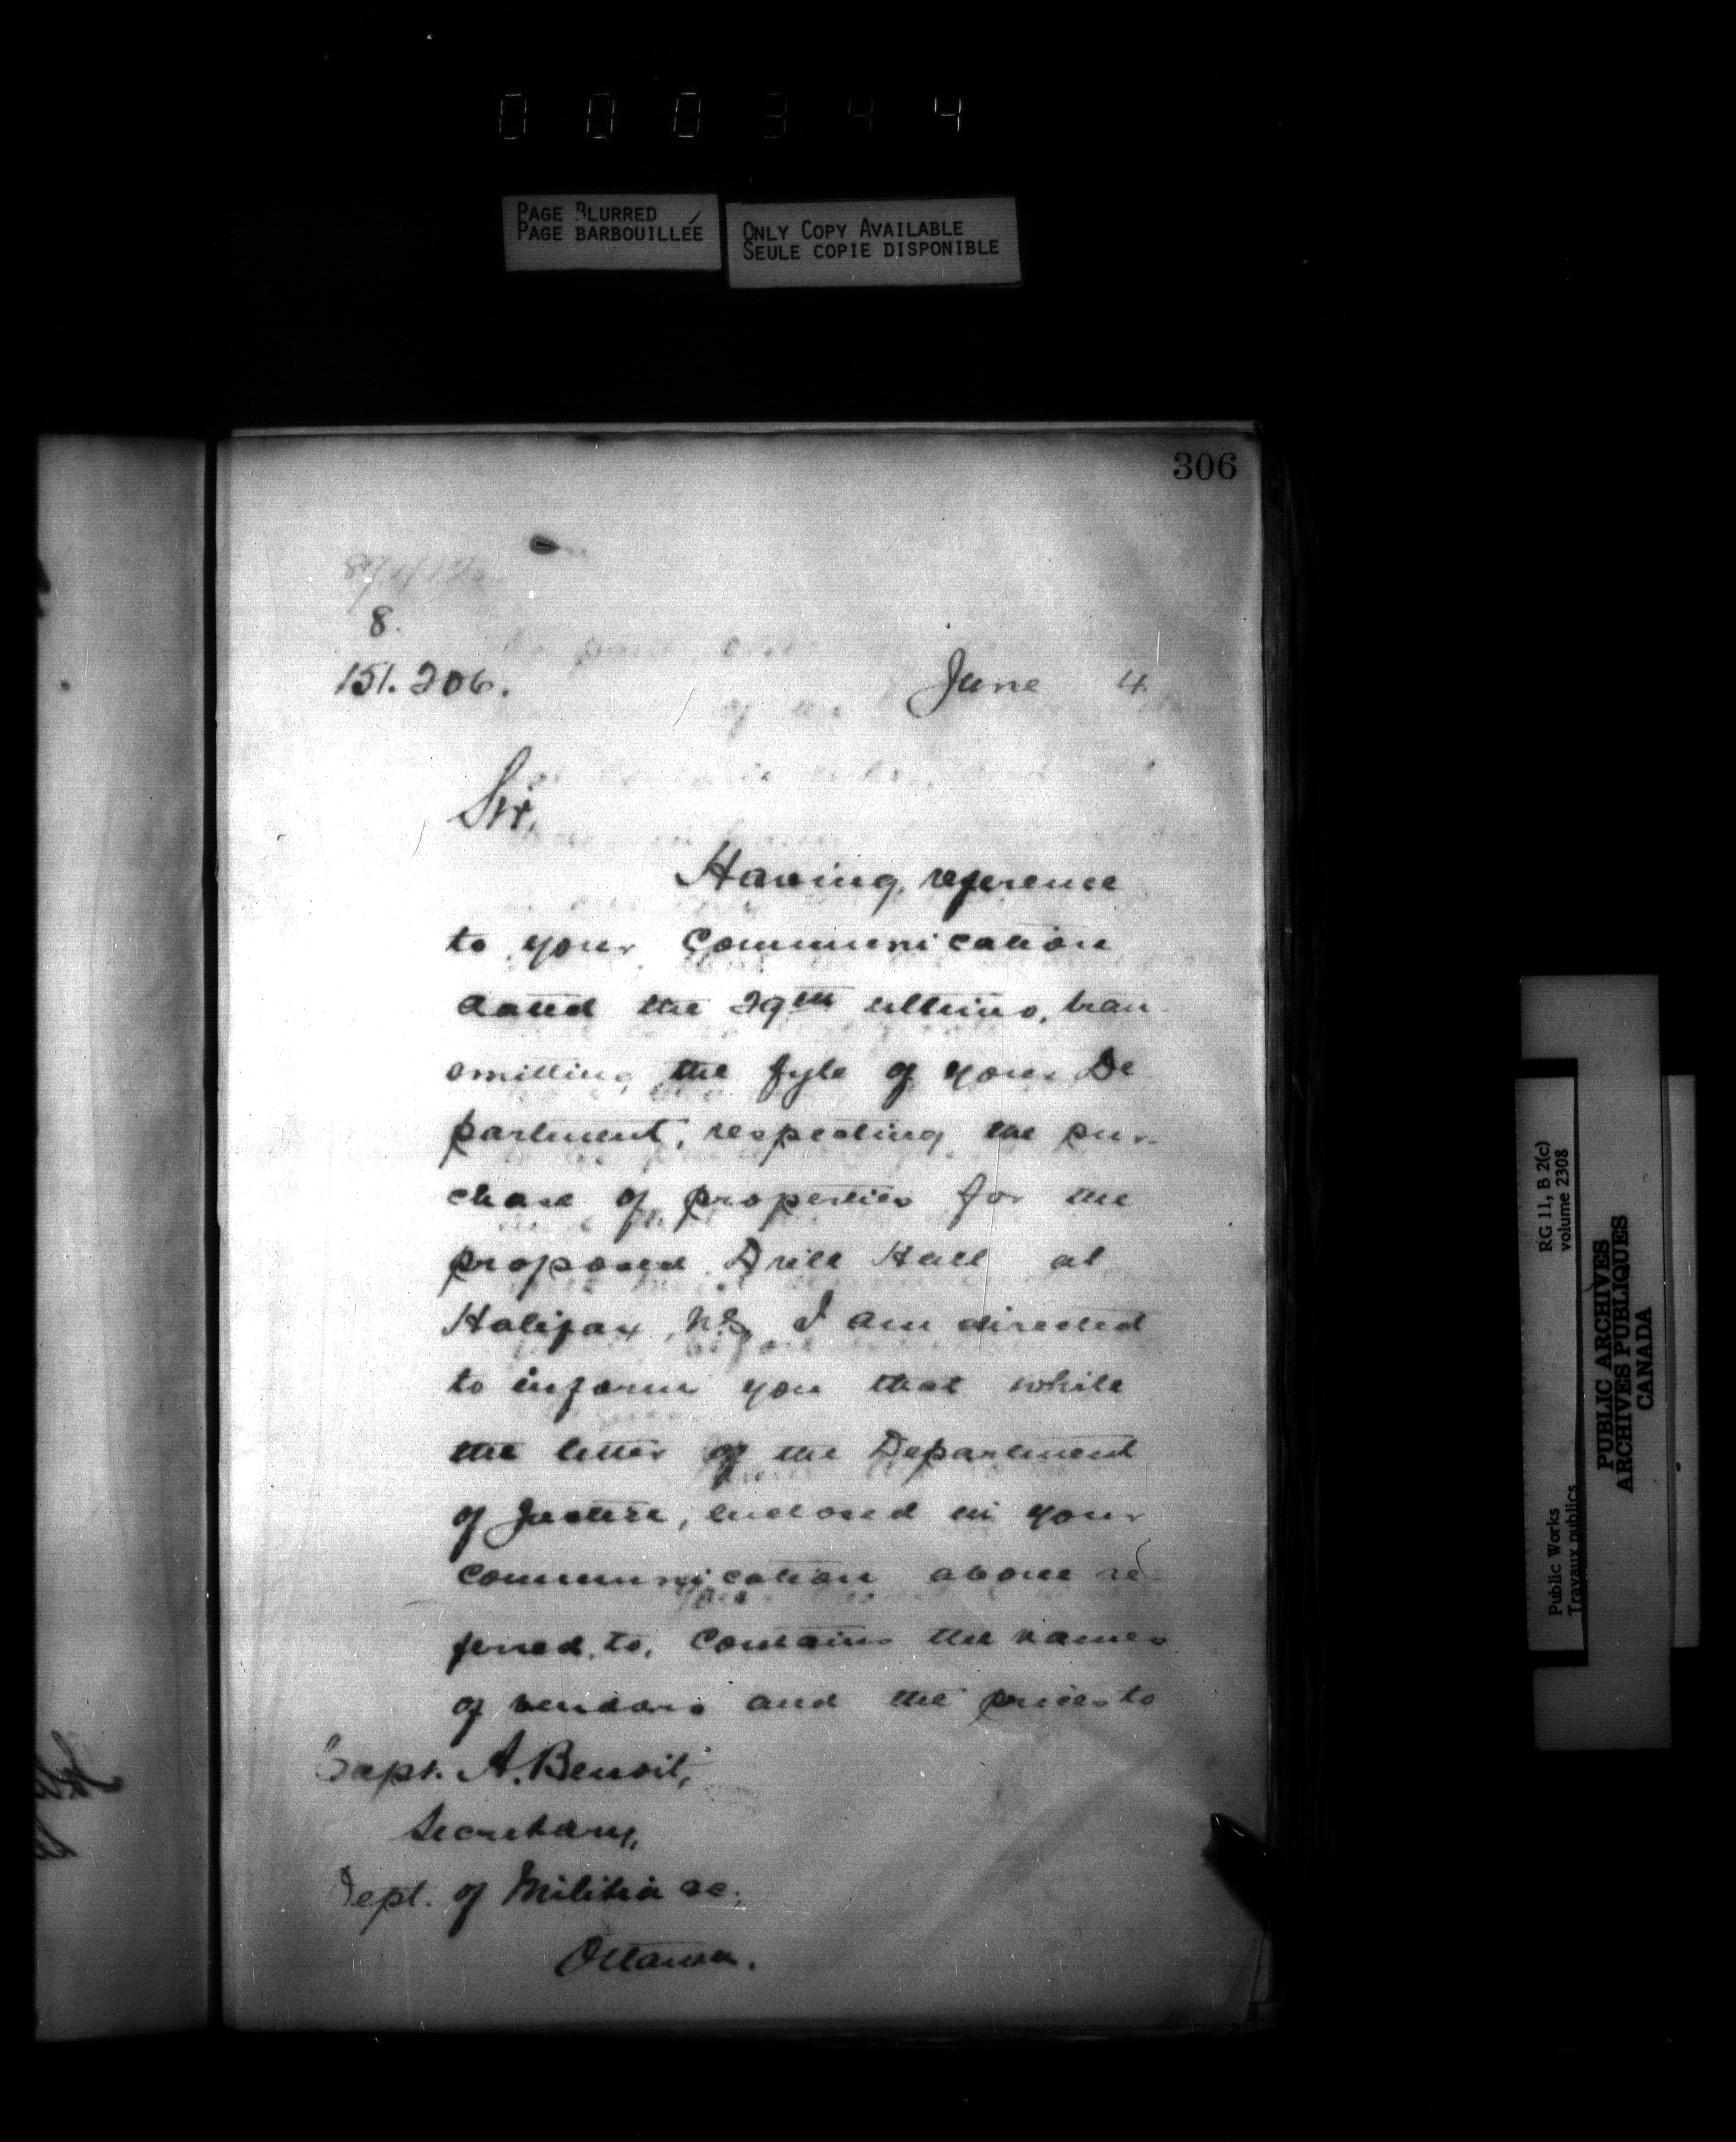 000344
PAGE BLURRED
PAGE BARBOUILLÉE
ONLY COPY AVAILABLE
SEULE COPIE DISPONIBLE
306
8.
151.206.
June 4.
Sir,
Having reference
to your Communication
dated the 29th ultimo, tran
smitting the fyle of your De
partment, respecting the pur-
chase of properties for the
proposed Drill Hall at
Halifax, N.S. I am directed
to inform you that while
the letter of the Department
of Justice, enclosed in your
communication above re
ferred to, contains the names
of vendors and the prices to
Capt. A. Benoit,
Secretary,
Dept. of Militia &c.,
Ottawa.
RG 11, B 2(c)
volume 2308
Public Works
Travaux publics
PUBLIC ARCHIVES
ARCHIVES PUBLIQUES
CANADA